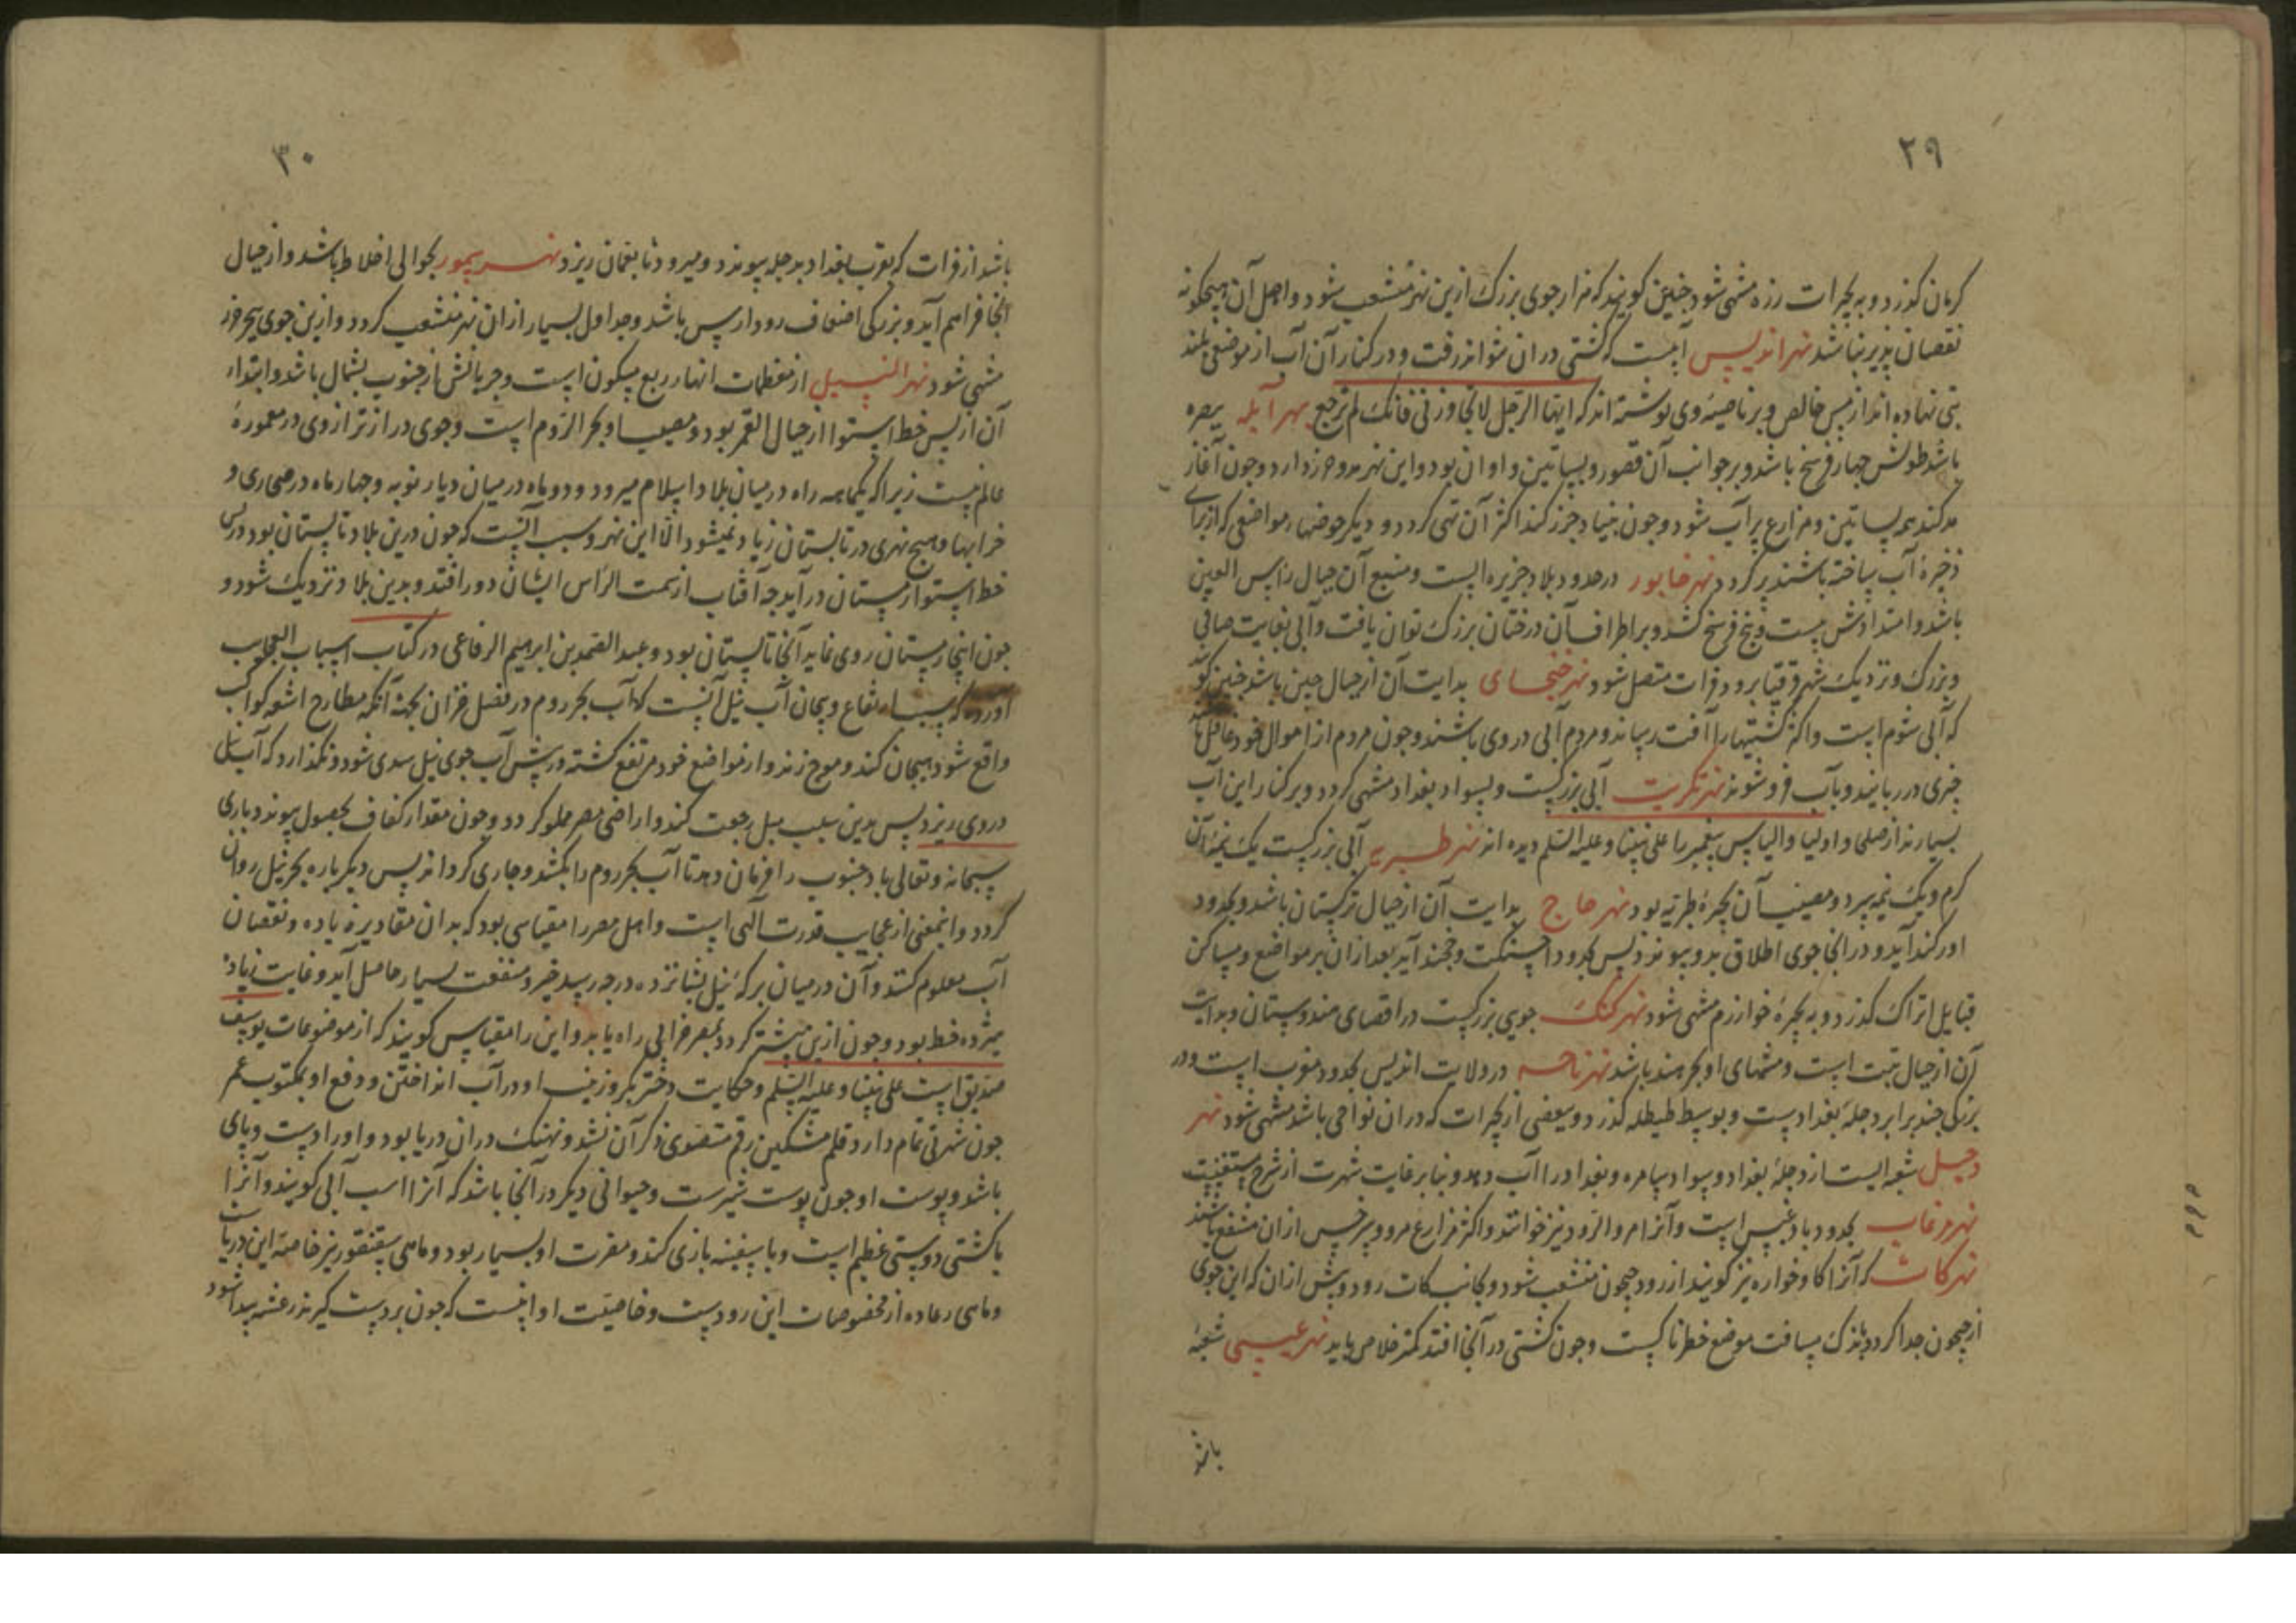 ۲۹
کرمان کذرد و به بحیرات رزه منتهی شود جنین کویند که هزار جوی بزرک ازین نهر منشعب شود و اصل آن هیجکونه
نقصان پذیر نباشد نهر اندلیس آبیست که کشتی در ان نتواند رفت و در کنار آن آب از موضعی بلند
بتی نهاده اند از مس خالص و بر ناصیهٔ وی نوشته اند که ایها الرجل لا تجاوزنی فانک لم ترجع نهر آبله ببصره
باشد طولش جهار فرسخ باشد و بر جوانب آن قصور و بساتین و اوان بود و این نهر مد و جزر دارد و جون آغاز
مد کند همه بساتین و مزارع پر آب شود و جون بنیاد جزر کند اکثر آن تهی کردد و دیکر حوضها و مواضعی که از برای
ذخیرهٔ آب ساخته باشند پر کردد نهر خابور در حدود بلاد جزیره است و منبع آن جبال راس العین
باشد و امتدادش بیست و پنج فرسخ کشد و بر اطراف آن درختان بزرک توان یافت و آبی بغایت صافی
و بزرک و نزدیک شهر قرقیا برود فرات متصل شود نهر خنجای بدایت آن از جبال جین باشد جنین کویند
که آبی شوم است و اکثر کشتیها را آفت رساند و مردم آبی در وی باشند و جون مردم از اموال خود غافل باشند
جیزی در ربایند و بآب فرو شوند نهر تکریت آبی بزرکست و بسواد بغداد منتهی کردد و بر کنار این آب
بسیار ند از صلحا و اولیا و الیاس پیغمبر را علی نبینا و علیه السلم دیده اند نهر طبریه آبی بزرکست یک نیمهٔ آن
کرم و یک نیمه سرد و مصب آن بحیرهٔ طبریه بود نهر حاج بدایت آن از جبال ترکستان باشد و بحدود
اورکند آید و در آنجا جوی اطلاق بدو پیوندد پس بحدود اخسیکت و خجند آید بعد از ان بر مواضع و مساکن
قبایل اتراک کذرد و به بحیرهٔ خوارزم منتهی شود نهر کنک جویی بزرکست در اقصای هندوستان و بدایت
آن از جبال تبت است و منتهای او بحر هند باشد نهر تاجه در ولایت اندلس بحدود مغرب است و در
بزرکی جند برابر دجلهٔ بغدادست و بوسط طیطله کذرد و ببعضی از بحیرات که در ان نواحی باشد منتهی شود نهر
دجیل شعبه ایست از دجلهٔ بغداد و بسواد سامره و بغداد را آب دهد و بنا بر غایت شهرت از شرح مستغنیست
نهر مرغاب بحدود بادغیس است و آنرا مرو الرود نیز خوانند و اکثر مزارع مرو و سرخس از ان منتفع باشند
نهر کات که آنرا کاوخواره نیز کویند از رود جیحون منشعب شود و بجانب کات رود و پیش از ان که این جوی
از جیحون جدا کردد باندک مسافت موضع خطرناکست و جون کشتی در آنجا افتد کمتر خلاص یابد نهر عیسی شعبهٔ
باشد
۳۰
باشد از فرات که بقرب بغداد بدجله پیوندد و میرود تا بعمان ریزد نهر یمور بحوالی اخلاط باشد و از جبال
آنجا فراهم آید و بزرکی اضعاف رود ارس باشد و جداول بسیار از ان نهر منشعب کردد و ازین جوی ببحر خزر
منتهی شود نهر النیل از معظمات انهار ربع مسکون است و جریانش از جنوب بشمال باشد و ابتدا
آن از پس خط استوا از جبال القمر بود و مصب او بحر الروم است و جوی دراز تر از وی در معمورهٔ
عالم نیست زیرا که یکماهه راه در میان بلاد اسلام میرود و دو ماه در میان دیار نوبه و جهار ماه در صحاری و
خرابها و هیج نهری در تابستان زیاد نمیشود الا این نهر و سبب آنست که جون درین بلاد تابستان بود در پس
خط استوا زمستان در آید جه آفتاب از سمت الراس ایشان دور افتد و بدین بلاد نزدیک شود و
جون اینجا زمستان روی نماید آنجا تابستان بود و عبد الصمد بن ابرهیم الرفاعی در کتاب اسباب العجایب
آورده که سبب ارتفاع و هیجان آب نیل آنست که آب بحر روم در فصل خزان بجهة آنکه مطارح اشعهٔ کواکب
واقع شود هیجان کند و موج زند و از مواضع خود مرتفع کشته در پیش آب جوی نیل سدی شود و نکذارد که آب نیل
در وی ریزد پس بدین سبب نیل رجعت کند و اراضی مصر مملو کردد و جون مقدار کفاف بحصول پیوندد باری
سبحانه و تعالی باد جنوب را فرمان دهد تا آب بحر روم را بکشد و جاری کرداند پس دیکر باره بحر نیل روان
کردد و اینمعنی از عجایب قدرت آلهی است و اهل مصر را مقیاسی بود که بدان مقادیر زیاده و نقصان
آب معلوم کنند و آن در میان برکهٔ نیل بشانزده درجه رسد خیر و منفعت بسیار حاصل آید و غایت زیادتی
هیژده خط بود و جون ازین بیشتر کردد بمصر خرابی راه یابد و این را مقیاس کویند که از موضوعات یوسف
صدیق است علی نبینا و علیه السلم و حکایت دختر بکر و زینب او در آب انداختن و دفع او بمکتوب عمر
جون شهرتی تمام دارد قلم مشکین رقم متصدی ذکر آن نشد و نهنک در ان دریا بود و او را دست و پای
باشد و پوست او جون پوست شیرست و حیوانی دیکر در آنجا باشد که آنرا اسب آبی کویند و آنرا
با کشتی دوستی عظیم است و با سفینه بازی کند و مضرت او بسیار بود و ماهی سقنقور نیز خاصهٔ این دریاست
و ماهی رعاده از مخصوصات این رودست و خاصیت او اینست که جون بر دست کیرند رعشه پیدا شود